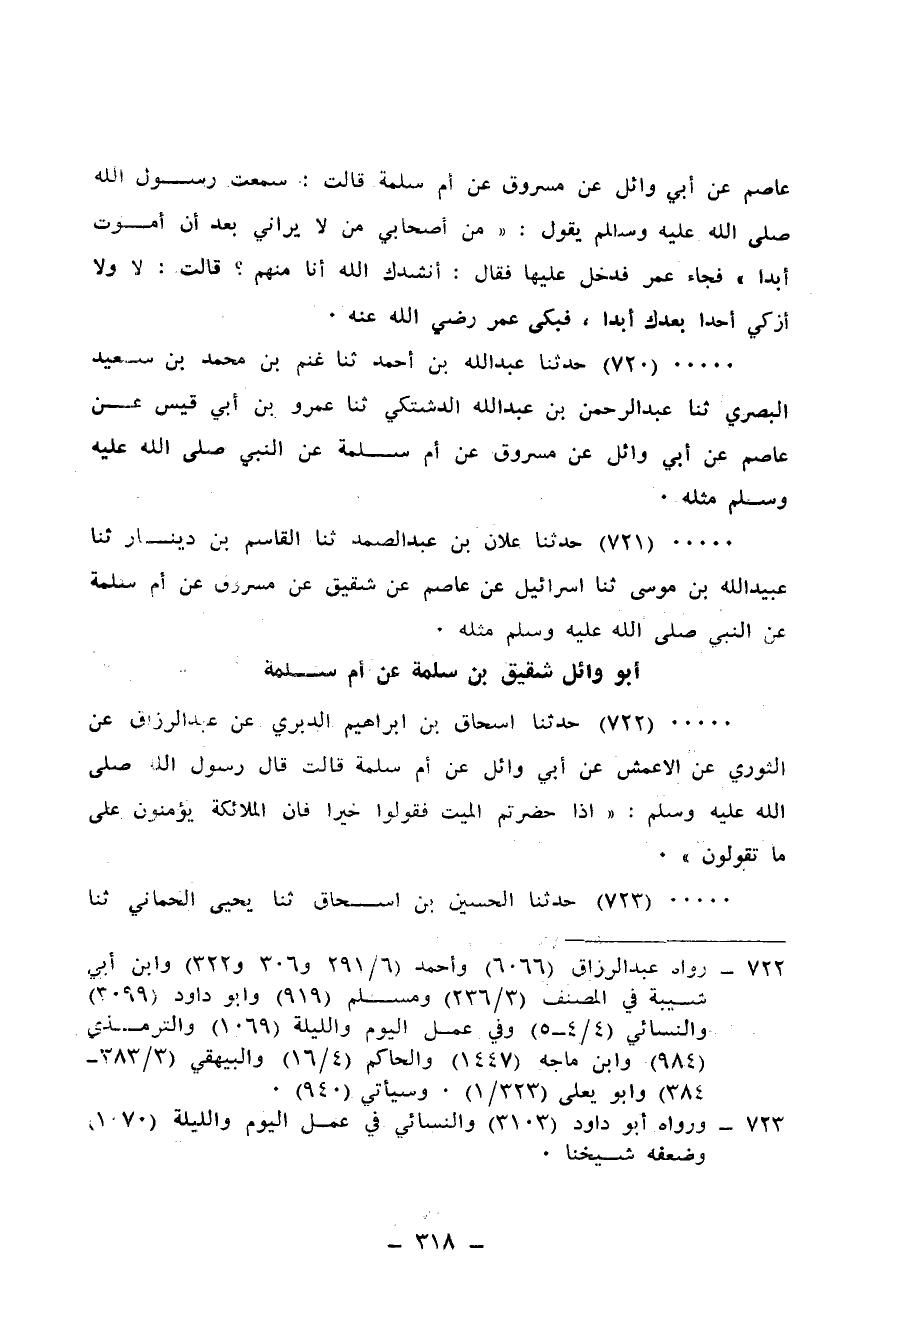 عاصم عن أبي وائل عن مسروق عن أم سلمة قالت : سمعت رسول الله
صلى الله عليه وسلم يقول : « من أصحابي من لا يراني بعد أن أموت
أبدا » فجاء عمر فدخل عليها فقال : أنشدك الله أنا منهم ؟ قالت : لا ولا
أزكي أحدا بعدك أبدا ، فبكى عمر رضي الله عنه ٠
٠٠٠٠٠ (٧٢٠) حدثنا عبدالله بن أحمد ثنا غنم بن محمد بن سعيد
البصري ثنا عبدالرحمن بن عبدالله الدشتكي ثنا عمرو بن أبي قيس عن
عاصم عن أبي وائل عن مسروق عن أم سلمة عن النبي صلى الله عليه
وسلم مثله ٠
٠٠٠٠٠ (٧٢١) حدثنا علان بن عبدالصمد ثنا القاسم بن دينار ثنا
عبيدالله بن موسى ثنا اسرائيل عن عاصم عن شقيق عن مسروق عن أم سلمة
عن النبي صلى الله عليه وسلم مثله ٠
أبو وائل شقيق بن سلمة عن أم سلمة
٠٠٠٠٠ (٧٢٢) حدثنا اسحاق بن ابراهيم الدبري عن عبدالرزاق عن
الثوري عن الاعمش عن أبي وائل عن أم سلمة قالت قال رسول الله صلى
الله عليه وسلم : « اذا حضرتم الميت فقولوا خيرا فان الملائكة يؤمنون على
ما تقولون » ٠
٠٠٠٠٠ (٧٢٣) حدثنا الحسين بن اسحاق ثنا يحيى الحماني ثنا
٧٢٢ – رواه عبدالرزاق (٦٠٦٦) وأحمد (٢٩١/٦ و٣٠٦ و٣٢٢) وابن أبي
شيبة في المصنف (٢٣٦/٣) ومسلم (٩١٩) وابو داود (٣٠٩٩)
والنسائي (٤/٤–٥) وفي عمل اليوم والليلة (١٠٦٩) والترمذي
(٩٨٤) وابن ماجه (١٤٤٧) والحاكم (١٦/٤) والبيهقي (٣٨٣/٣–
٣٨٤) وابو يعلى (١/٣٢٣) ٠ وسيأتي (٩٤٠) ٠
٧٢٣ – ورواه أبو داود (٣١٠٣) والنسائي في عمل اليوم والليلة (١٠٧٠)
وضعفه شيخنا ٠
– ٣١٨ –